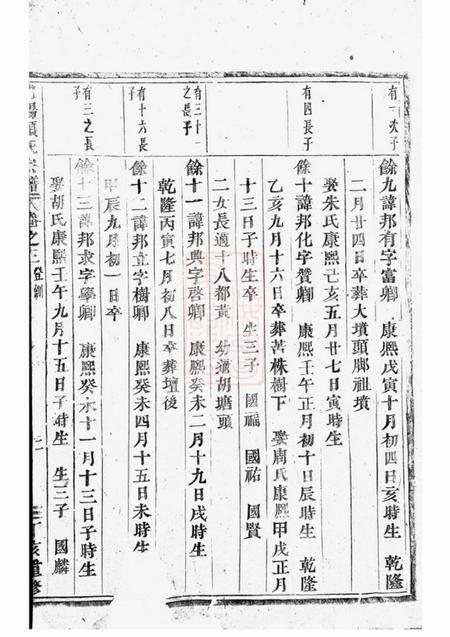 有一次子
餘九諱邦有字富卿 康熙戊寅十月初四日亥時生 乾隆
二月廿四日卒葬大墳頭脚祖墳
娶朱氏康熙己亥五月廿七日寅時生
有四長子
餘十諱邦化字贊卿 康熙壬午正月初十日辰時生 乾隆
乙亥九月十六日卒葬苦株樹下 娶周氏康熙甲戌正月
十三日子時生卒 生三子 國福 國祐 國賢
二女長適十八都黃 幼適胡塘頭
有三十一之長子
餘十一諱邦典字啓卿 康熙癸未二月十九日戌時生
乾隆丙寅七月初八日卒葬壇後
有十六長子
餘十二諱邦立字樹卿 康熙癸未四月十五日未時生
甲辰九月初一日卒
有三之長子
餘十三諱邦求字學卿 康熙癸未十一月十三日子時生
娶胡氏康熙壬午九月十五日子時生 生三子 國麟
氏宗譜 卷之三
亥重修